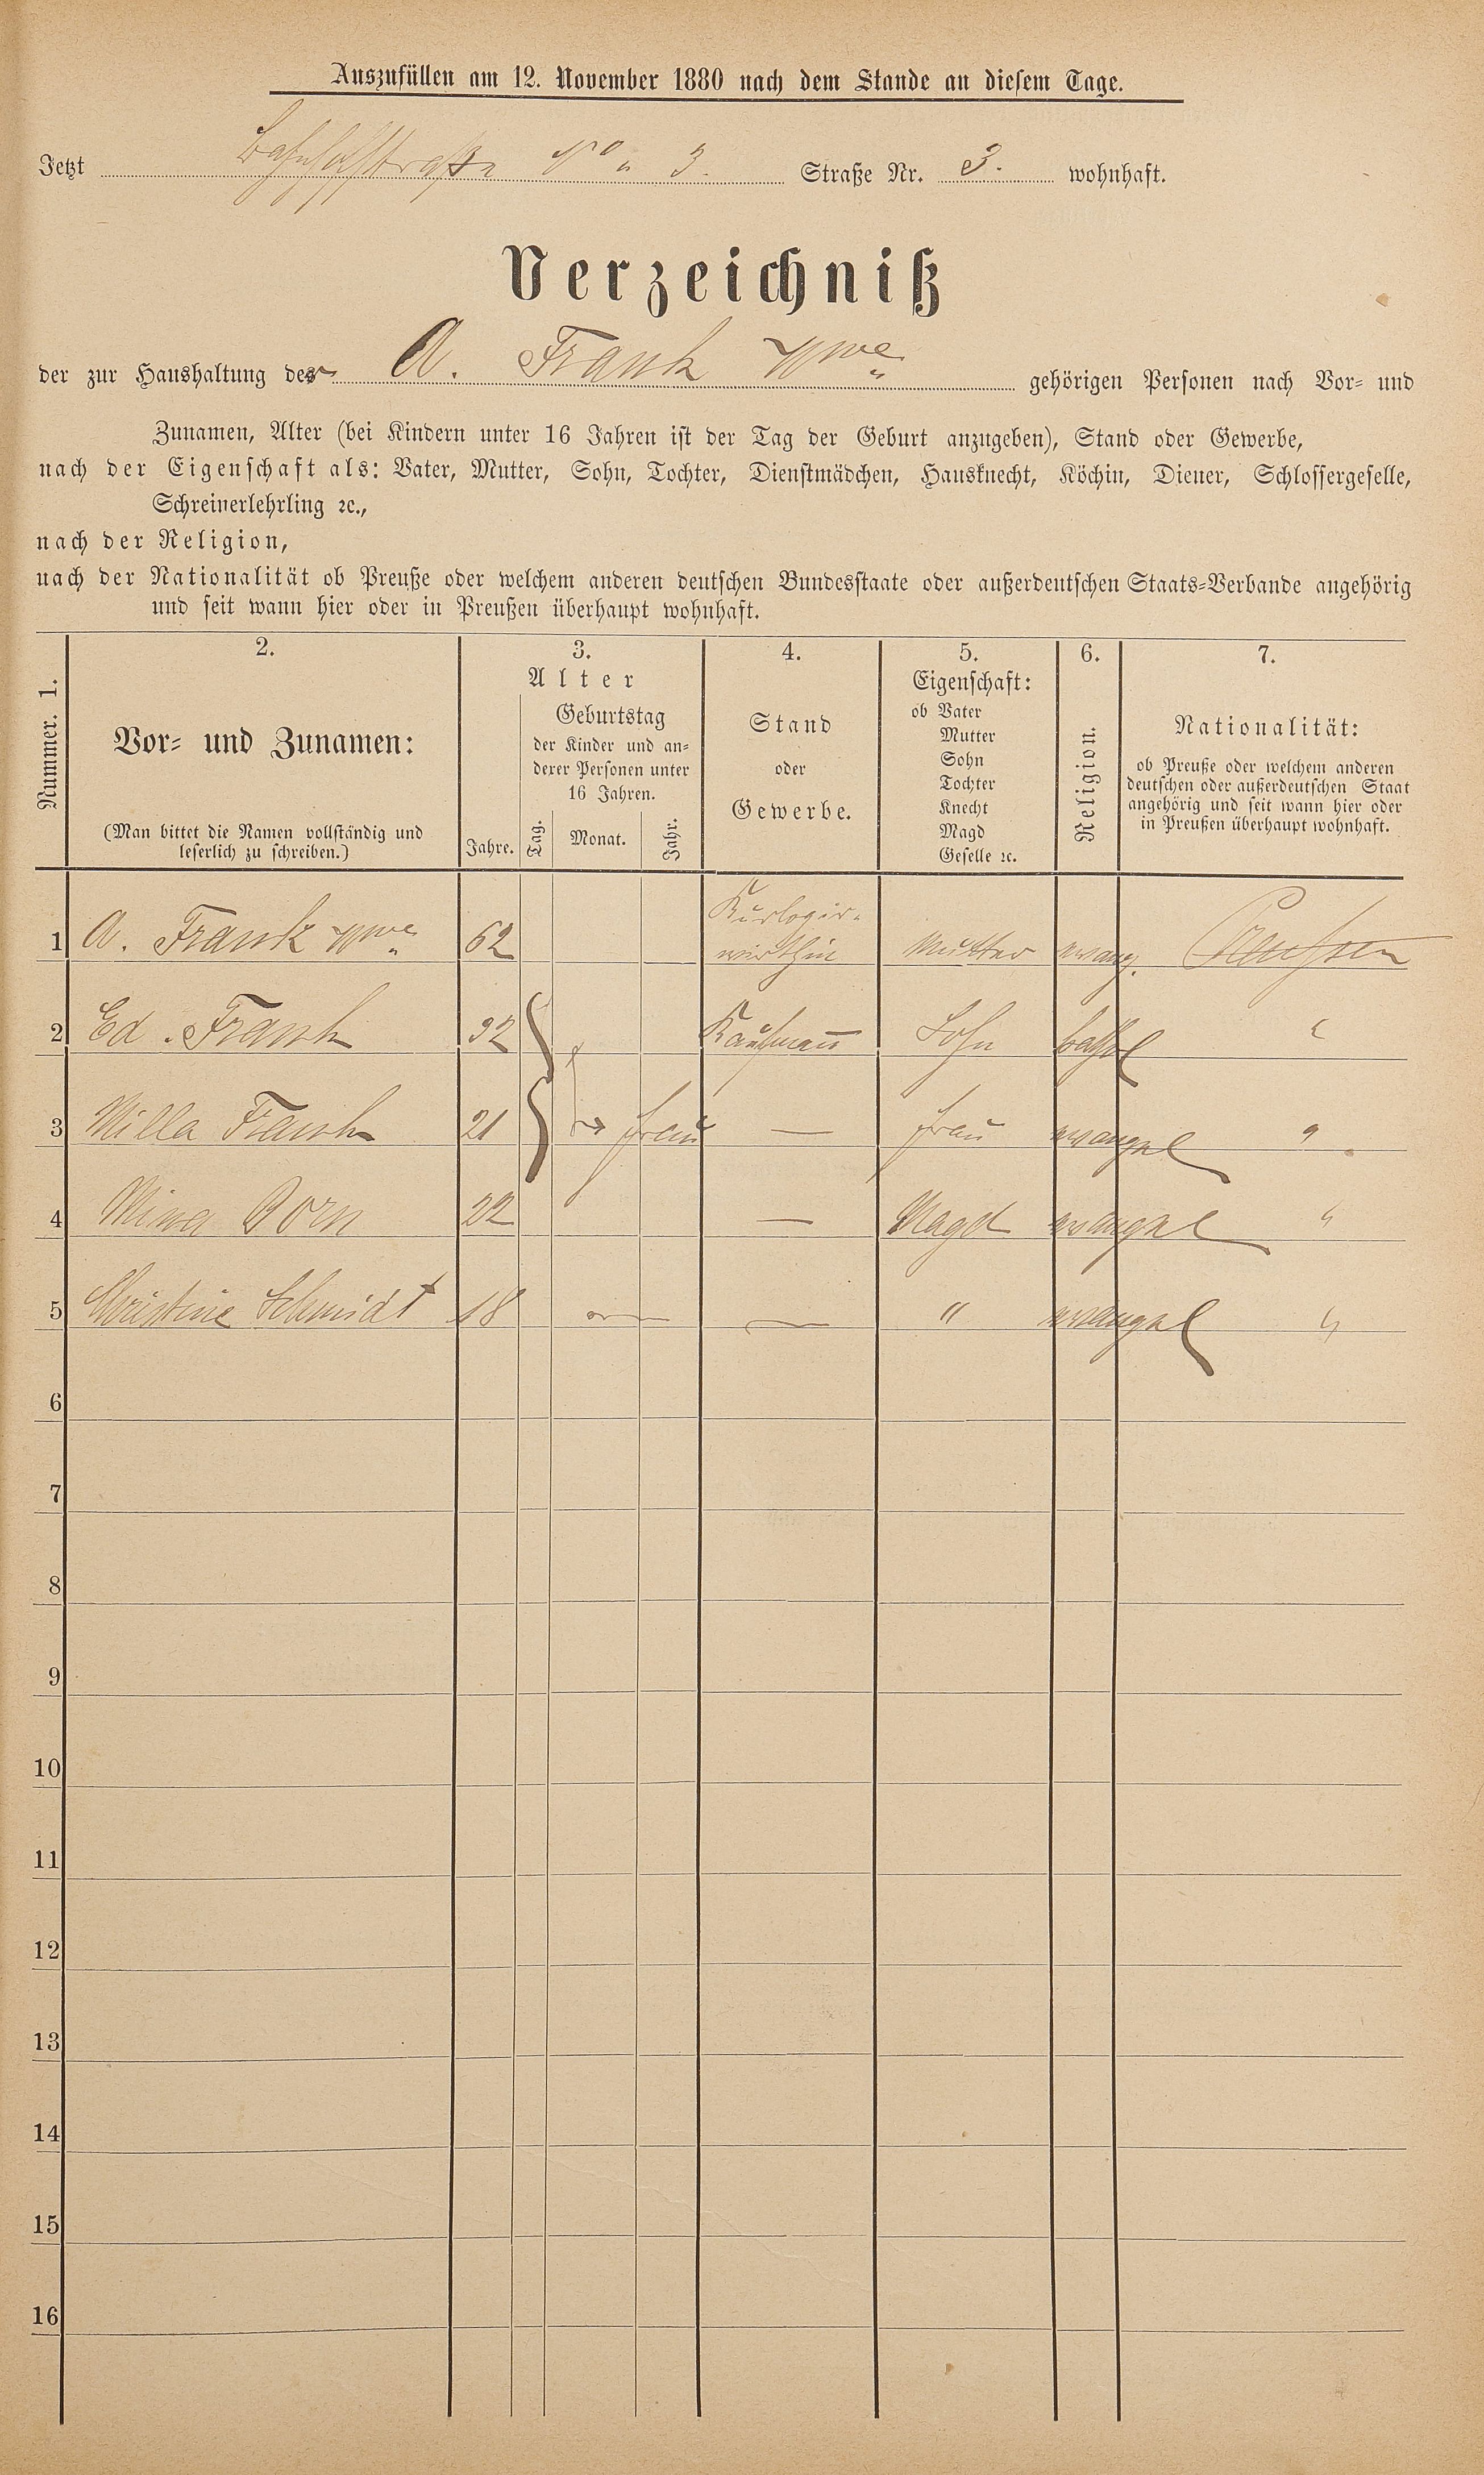 Auszufüllen am 12. November 1880 nach dem Stande an diesem Tage.
Jetzt Bahnhofstraße No 3. Straße Nr. 3. wohnhaft.
Verzeichniß
der zur Haushaltung der A. Frank Wwe gehörigen Personen nach Vor- und
Zunamen, Alter (bei Kindern unter 16 Jahren ist der Tag der Geburt anzugeben), Stand oder Gewerbe,
nach der Eigenschaft als: Vater, Mutter, Sohn, Tochter, Dienstmädchen, Hausknecht, Köchin, Diener, Schlossergeselle,
Schreinerlehrling ꝛc.,
nach der Religion,
nach der Nationalität ob Preuße oder welchem anderen deutschen Bundesstaate oder außerdeutschen Staats-Verbande angehörig
und seit wann hier oder in Preußen überhaupt wohnhaft.
Nummer. 1.
2.
Vor- und Zunamen:
(Man bittet die Namen vollständig und
leserlich zu schreiben.)
3.
Alter
Jahre.
Geburtstag
der Kinder und an-
derer Personen unter
16 Jahren.
Tag. Monat. Jahr.
4.
Stand
oder
Gewerbe.
5.
Eigenschaft:
ob Vater
Mutter
Sohn
Tochter
Knecht
Magd
Geselle ꝛc.
6.
Religion.
7.
Nationalität:
ob Preuße oder welchem anderen
deutschen oder außerdeutschen Staat
angehörig und seit wann hier oder
in Preußen überhaupt wohnhaft.
1 A. Frank Wwe 62 Kurlogir-
wirthin Mutter evang. Preussen
2 Ed. Frank 32 Kaufmann Sohn kathol "
3 Milla Frank 21 Frau — Frau evangel "
4 Mina Dorn 22 — Magd evangel "
5 Christine Schmidt 18 — — " evangel "
6
7
8
9
10
11
12
13
14
15
16